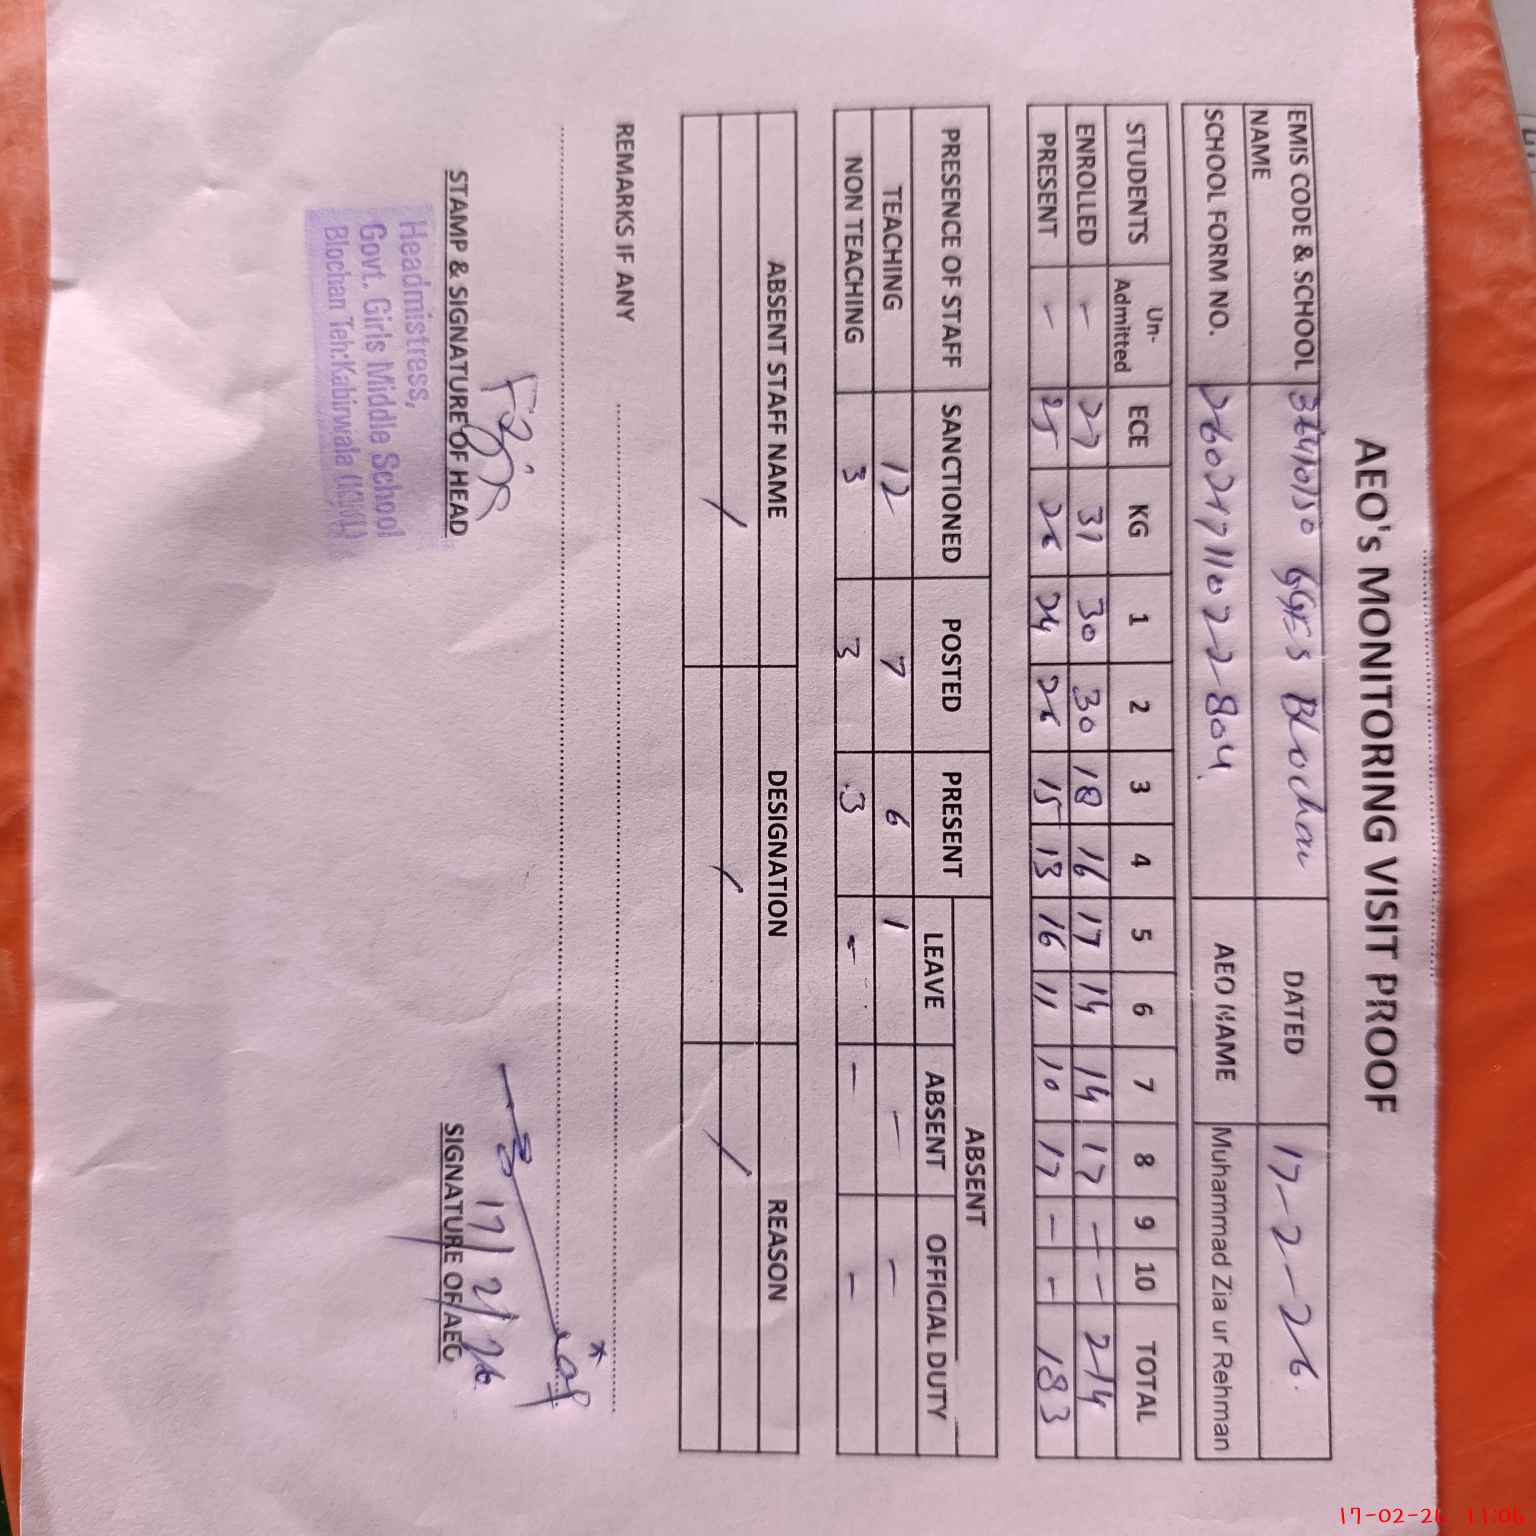 AEO's MONITORING VISIT PROOF
EMIS CODE & SCHOOL NAME GGES Blochan DATED 17-2-26.
SCHOOL FORM NO. AEO NAME Muhammad Zia ur Rehman
STUDENTS Un-Admitted ECE KG 1 2 3 4 5 6 7 8 9 10 TOTAL
ENROLLED - 27 31 30 30 18 16 17 14 14 17 - - 214
PRESENT - 25 26 24 26 15 13 16 11 10 17 - - 183
PRESENCE OF STAFF SANCTIONED POSTED PRESENT ABSENT
LEAVE ABSENT OFFICIAL DUTY
TEACHING 12 7 6 1 - -
NON TEACHING 3 3 3 - - -
ABSENT STAFF NAME DESIGNATION REASON
/ / /
REMARKS IF ANY
17/2/26
STAMP & SIGNATURE OF HEAD SIGNATURE OF AEO
Headmistress,
Govt. Girls Middle School
Blochan Teh:Kabirwala (KWL)
17-02-26 11:06